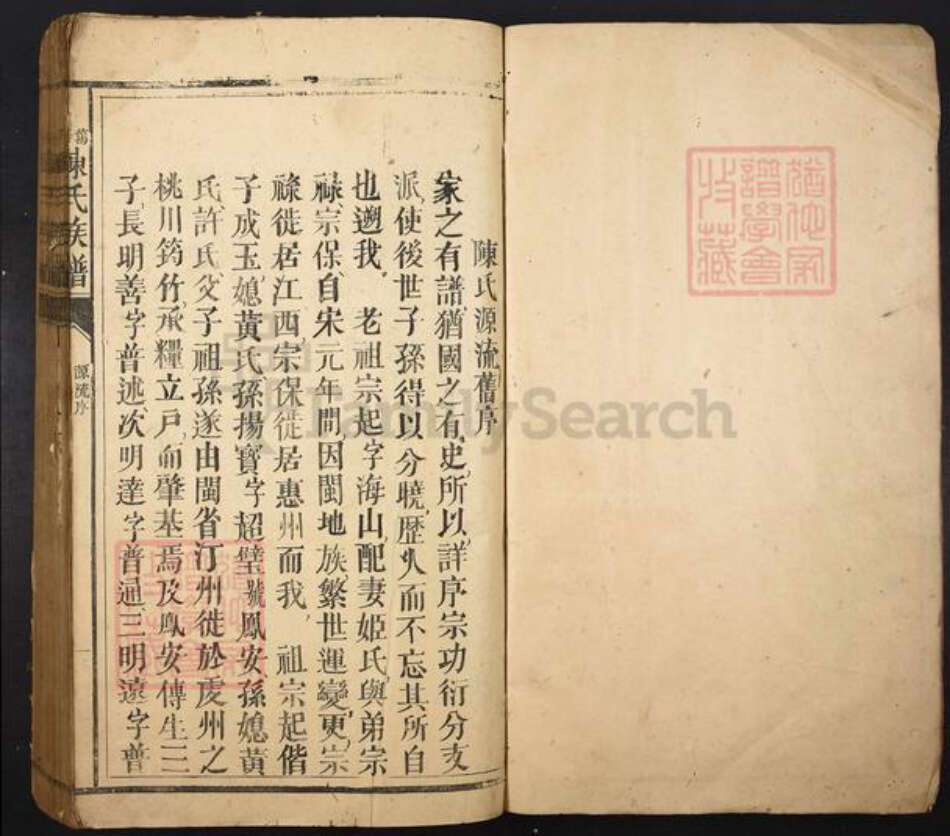 陳氏源流舊序
家之有譜猶國之有史所以詳序宗功衍分支
派使後世子孫得以分曉歷久而不忘其所自
也邇我　老祖宗起字海山配妻姬氏與弟宗
祿宗保自宋元年間因閩地族繁世運變更宗
祿徙居江西宗保徙居惠州而我　祖宗起偕
子成玉媳黃氏孫揚寶字超璧號鳳安孫媳黃
氏許氏父子祖孫遂由閩省汀州徙於虔州之
桃川筠竹承糧立戶而肇基焉及鳳安傳生三
子長明善字普述次明達字普通三明遠字普
陳氏族譜
源流序
猶他家
譜學會
收藏
FamilySearch